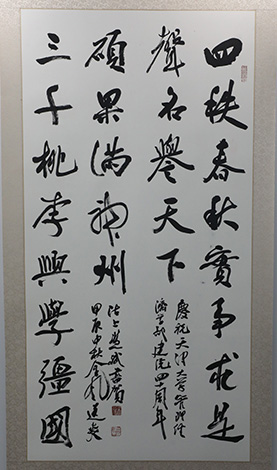 四秩春秋實事求是
聲名譽天下
碩果滿神州
三千桃李興學疆國
慶祝天津大学管理经
濟学部建院四十周年
甲辰中秋